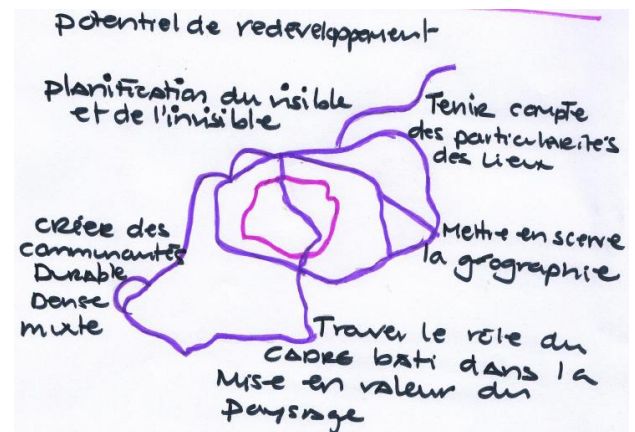 potentiel de redéveloppement
planification du visible
et de l'invisible
Tenir compte
des particularités
des lieux
créer des
communautés
Durable
Dense
mixte
Mettre en scene
la géographie
Trouver le rôle du
CADRE bâti dans la
Mise en valeur du
paysage